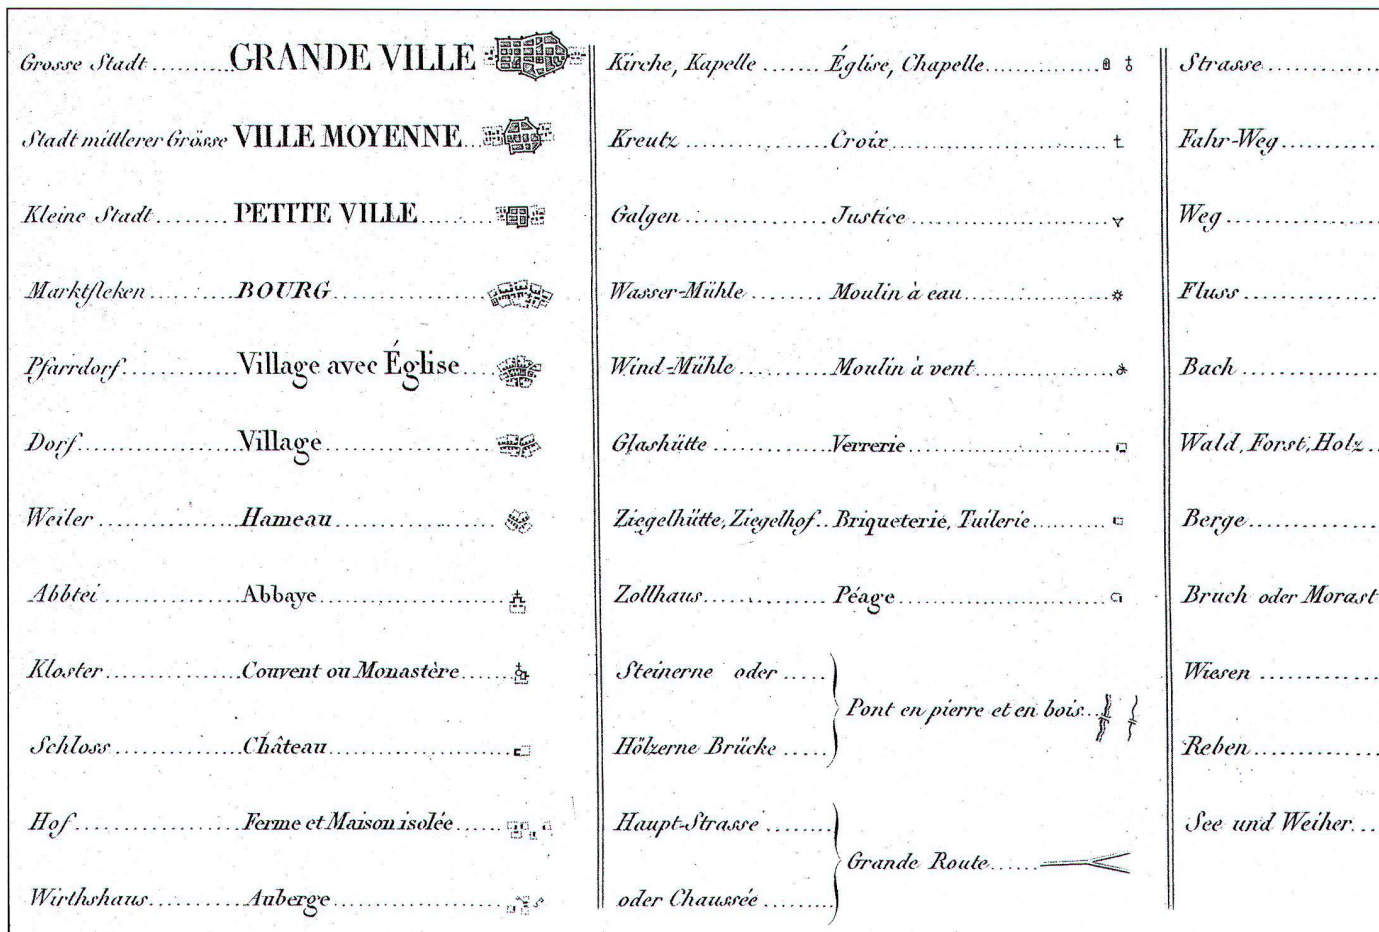 Grosse Stadt ......... GRANDE VILLE
Stadt mittlerer Grösse VILLE MOYENNE
Kleine Stadt ....... PETITE VILLE
Marktfleken ......... BOURG
Pfarrdorf .......... Village avec Église
Dorf ............. Village
Weiler ............ Hameau
Abbtei ............ Abbaye
Kloster ........... Couvent ou Monastère
Schloss ........... Château
Hof ............. Ferme et Maison isolée
Wirthshaus ........ Auberge
Kirche, Kapelle ...... Église, Chapelle
Kreutz ............ Croix
Galgen ............ Justice
Wasser-Mühle ....... Moulin à eau
Wind-Mühle ........ Moulin à vent
Glashütte .......... Verrerie
Ziegelhütte, Ziegelhof .. Briqueterie, Tuilerie
Zollhaus .......... Péage
Steinerne oder .....
Pont en pierre et en bois
Hölzerne Brücke .....
Haupt-Strasse .......
Grande Route
oder Chaussée .......
Strasse
Fahr-Weg
Weg
Fluss
Bach
Wald, Forst, Holz
Berge
Bruch oder Morast
Wiesen
Reben
See und Weiher